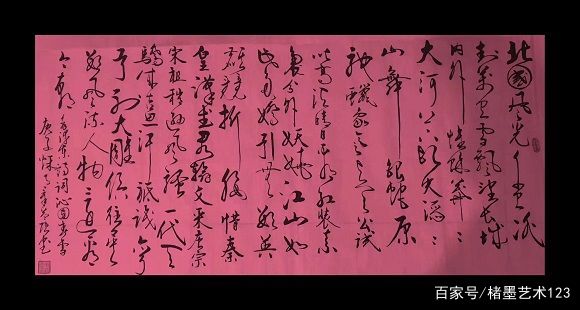 北國风光千里冰
封万里雪飘望长城
内外惟餘莽〻
大河上下顿失滔〻
山舞银蛇原
驰蠟象欲与天公试
比高须晴日看红装素
裹分外妖娆江山如
此多娇引无数英
雄竞折腰惜秦
皇漢武略输文采唐宗
宋祖稍逊风骚一代天
骄成吉思汗祇识弯
弓射大雕俱往矣
数风流人物还看
今朝
毛泽东诗词沁园春雪
庚子
百家号/楮墨艺术123